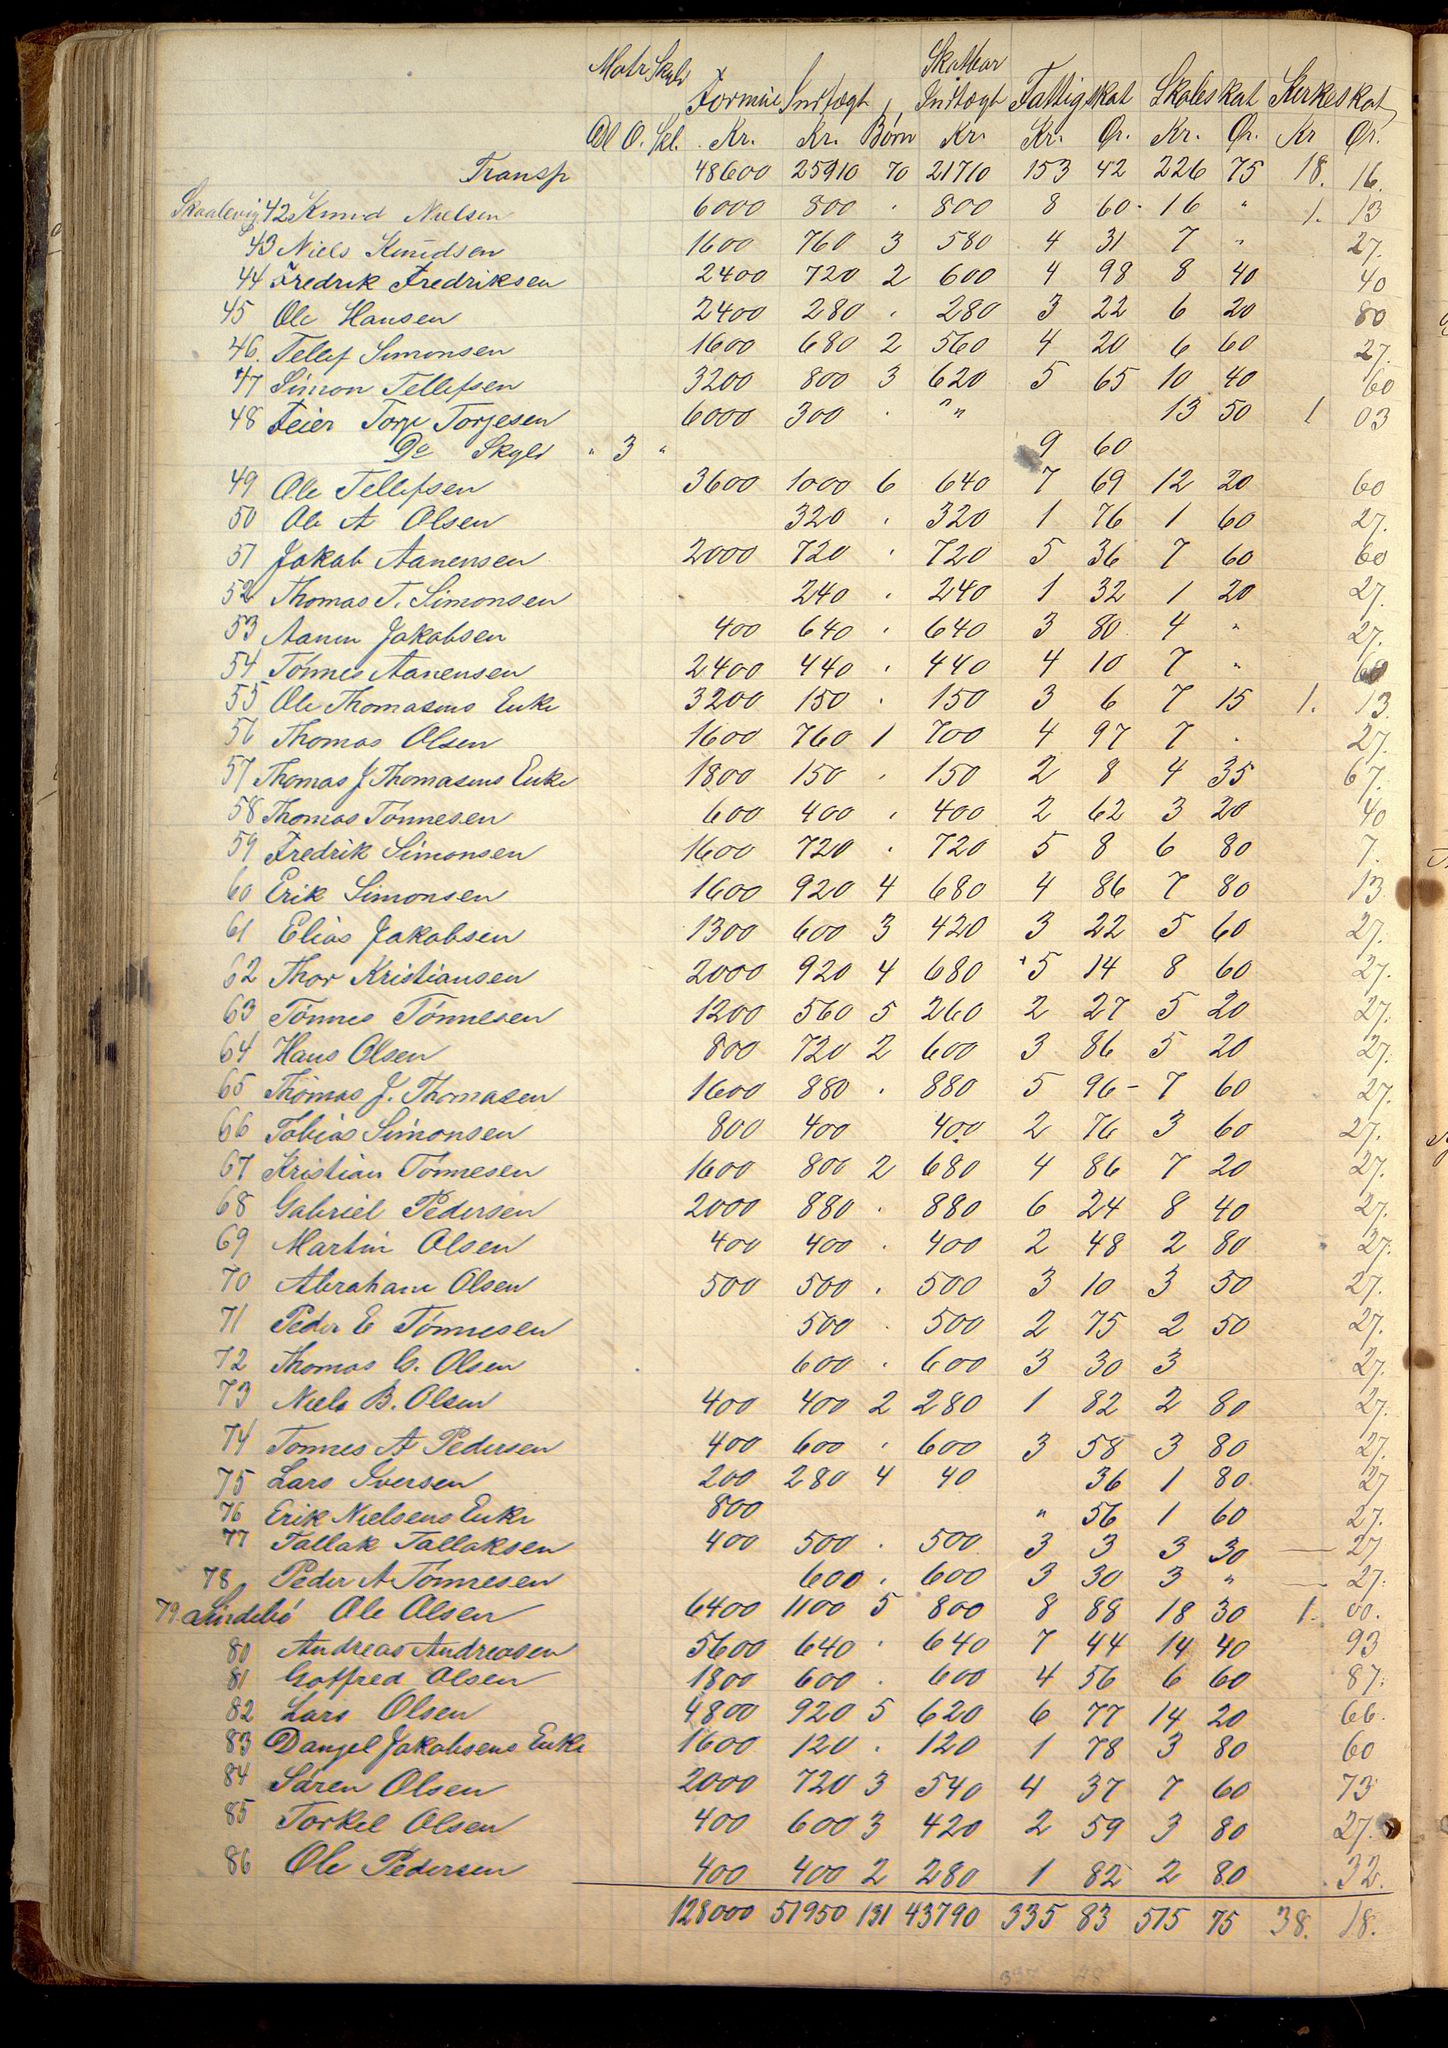 Matr Skyld Skatbar
Formue Indtægt Indtægt Fattigskat Skoleskat Kirkeskat
Dl O. Skl. Kr. Kr. Børn Kr. Kr. Ør. Kr. Ør. Kr Ør.
Transp 48600 25910 70 21710 153 42 226 75 18. 16.
Skaalevig 42 Knud Nielsen 6000 800 . 800 8 60 - 16 " 1. 13
43 Niels Knudsen 1600 760 3 580 4 31 7 " 27.
44 Fredrik Fredriksen 2400 720 2 600 4 98 8 40 40
45 Ole Hansen 2400 280 . 280 3 22 6 20 80
46. Tellef Simonsen 1600 680 2 560 4 20 6 60 27.
47 Simon Tellefsen 3200 800 3 620 5 65 10 40 60
48 Feier Torje Torjesen 6000 300 . " " 13 50 1 03
Do Skyld " 3 " 9 60
49 Ole Tellefsen 3600 1000 6 640 7 69 12 20 60
50 Ole A Olsen 320 . 320 1 76 1 60 27.
51 Jakob Aanensen 2000 720 . 720 5 36 7 60 60
52 Thomas T. Simonsen 240 . 240 1 32 1 20 27.
53 Aanen Jakobsen 400 640 . 640 3 80 4 " 27.
54 Tönnes Aanensen 2400 440 . 440 4 10 7 " 60
55 Ole Thomasens Enke 3200 150 . 150 3 6 7 15 1. 13
56 Thomas Olsen 1600 760 1 700 4 97 7 . 27.
57 Thomas J Thomasens Enke 1800 150 . 150 2 8 4 35 67.
58 Thomas Tönnesen 600 400 . 400 2 62 3 20 40
59 Fredrik Simonsen 1600 720 . 720 5 8 6 80 7.
60 Erik Simonsen 1600 920 4 680 4 86 7 80 13
61 Elias Jakobsen 1300 600 3 420 3 22 5 60 27.
62 Thor Kristiansen 2000 920 4 680 5 14 8 60 27.
63 Tönnes Tönnesen 1200 560 5 260 2 27 5 20 27.
64 Hans Olsen 800 720 2 600 3 86 5 20 27.
65 Thomas J. Thomasen 1600 880 . 880 5 96 - 7 60 27.
66 Tobias Simonsen 800 400 400 2 76 3 60 27.
67 Kristian Tönnesen 1600 800 2 680 4 86 7 20 27.
68 Gabriel Pedersen 2000 880 . 880 6 24 8 40 27.
69 Martin Olsen 400 400 . 400 2 48 2 80 27.
70 Abraham Olsen 500 500 . 500 3 10 3 50 27.
71 Peder E Tönnesen 500 . 500 2 75 2 50 27.
72 Thomas G. Olsen 600 . 600 3 30 3 27.
73 Niels B. Olsen 400 400 2 280 1 82 2 80 27.
74 Tönnes A Pedersen 400 600 . 600 3 58 3 80 27.
75 Lars Iversen 200 280 4 40 36 1 80 27
76 Erik Nielsens Enke 800 " 56 1 60 27.
77 Tallak Tallaksen 400 500 . 500 3 3 3 30 — 27
78 Peder A Tönnesen 600 . 600 3 30 3 " — 27.
79 Lindebö Ole Olsen 6400 1100 5 800 8 88 18 30 1. 00.
80 Andreas Andreasen 5600 640 . 640 7 44 14 40 93
81 Gotfred Olsen 1800 600 . 600 4 56 6 60 87.
82 Lars Olsen 4800 920 5 620 6 77 14 20 66.
83 Dangel Jakobsens Enke 1600 120 . 120 1 78 3 80 60
84 Sören Olsen 2000 720 3 540 4 37 7 60 73
85 Torkel Olsen 400 600 3 420 2 59 3 80 27.
86 Ole Pedersen 400 400 2 280 1 82 2 80 32.
128000 51950 131 43790 335 83 515 75 38. 18.